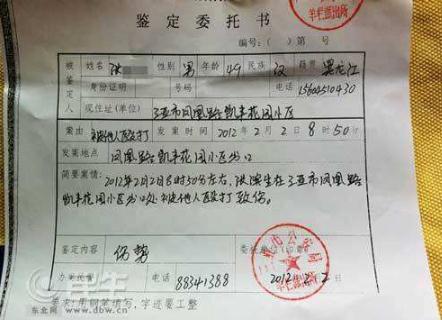 羊栏派出所
鉴定委托书
编号：（ ）第 号
被鉴定人 姓名 洪 性别 男 年龄 49 民族 汉 籍贯 黑龙江
身份证明 电话 15604510430
现住址(单位) 三亚市凤凰路凯丰花园小区
案由 被他人殴打 发案时间 2012年2月2日8时50分
发案地点 凤凰路凯丰花园小区出口
简要案情: 2012年2月2日8时50分左右，洪 生在三亚市凤凰路
凯丰花园小区出口处被他人殴打致伤。
鉴定内容 伤势 委托单位(印章)
市公安局
办案民警 电话 88341388 2012 2 2
要求:用钢笔填写,字迹要工整
东北网 www.dbw.cn